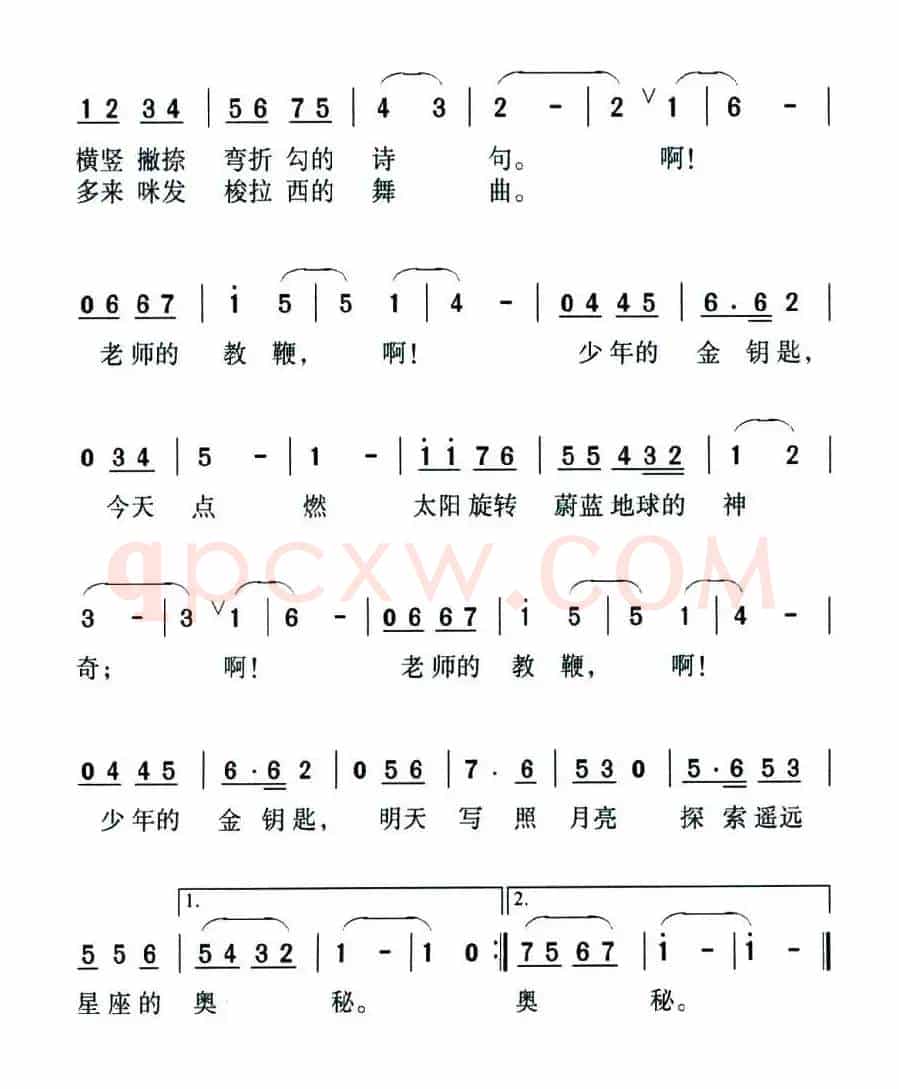 1 2 3 4 | 5 6 7 5 | 4 3 | 2 - | 2 V 1 | 6 - |
横竖 撇捺 弯折 勾的 诗 句。 啊!
多来 咪发 梭拉 西的 舞 曲。
0 6 6 7 | i 5 | 5 1 | 4 - | 0 4 4 5 | 6 · 6 2 |
老师的 教 鞭, 啊! 少年的 金 钥匙,
0 3 4 | 5 - | 1 - | i i 7 6 | 5 5 4 3 2 | 1 2 |
今天 点 燃 太阳 旋转 蔚蓝 地球的 神
qpcxw.COM
3 - | 3 V 1 | 6 - | 0 6 6 7 | i 5 | 5 1 | 4 - |
奇; 啊! 老师的 教 鞭, 啊!
0 4 4 5 | 6 · 6 2 | 0 5 6 | 7 · 6 | 5 3 0 | 5 · 6 5 3 |
少年的 金 钥匙, 明天 写 照 月亮 探 索遥远
1. 2.
5 5 6 | 5 4 3 2 | 1 - | 1 0 :| 7 5 6 7 | i - | i - |
星座的 奥 秘。 奥 秘。